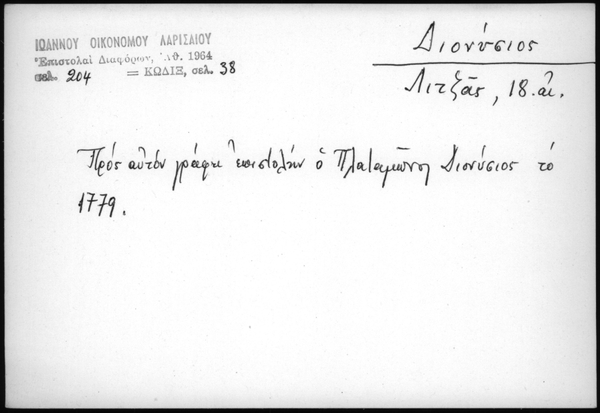 ΙΩΑΝΝΟΥ ΟΙΚΟΝΟΜΟΥ ΛΑΡΙΣΑΙΟΥ
Ἐπιστολαὶ Διαφόρων, Ἀθ. 1964
σελ. 204 = ΚΩΔΙΞ, σελ. 38
Διονύσιος
Λιτζᾶς, 18. αἰ.
Πρός αὐτόν γράφει ἐπιστολήν ὁ Πλαταμῶνος Διονύσιος τό
1779.